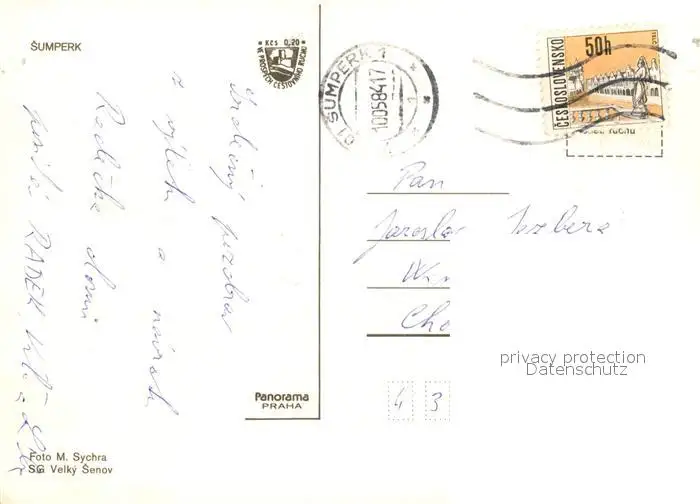 ŠUMPERK
Kčs 0,20
VE PROSPĚCH CESTOVNÍHO RUCHU
Srdečný pozdrav
z výletu a návrat
Radečka domů
posílá RADEK,
Foto M. Sychra
SG Velký Šenov
Panorama
PRAHA
ŠUMPERK 1
10.05.84-17
ČESKOSLOVENSKO
50h
TELČ
ruchu
Pan
Jaroslav
4 3
privacy protection
Datenschutz